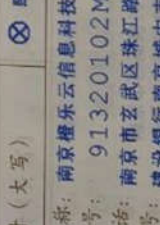 ⊗
(大写)
称: 南京橙乐云信息科技
号: 91320102M
话: 南京市玄武区珠江路
号: 建设银行南京